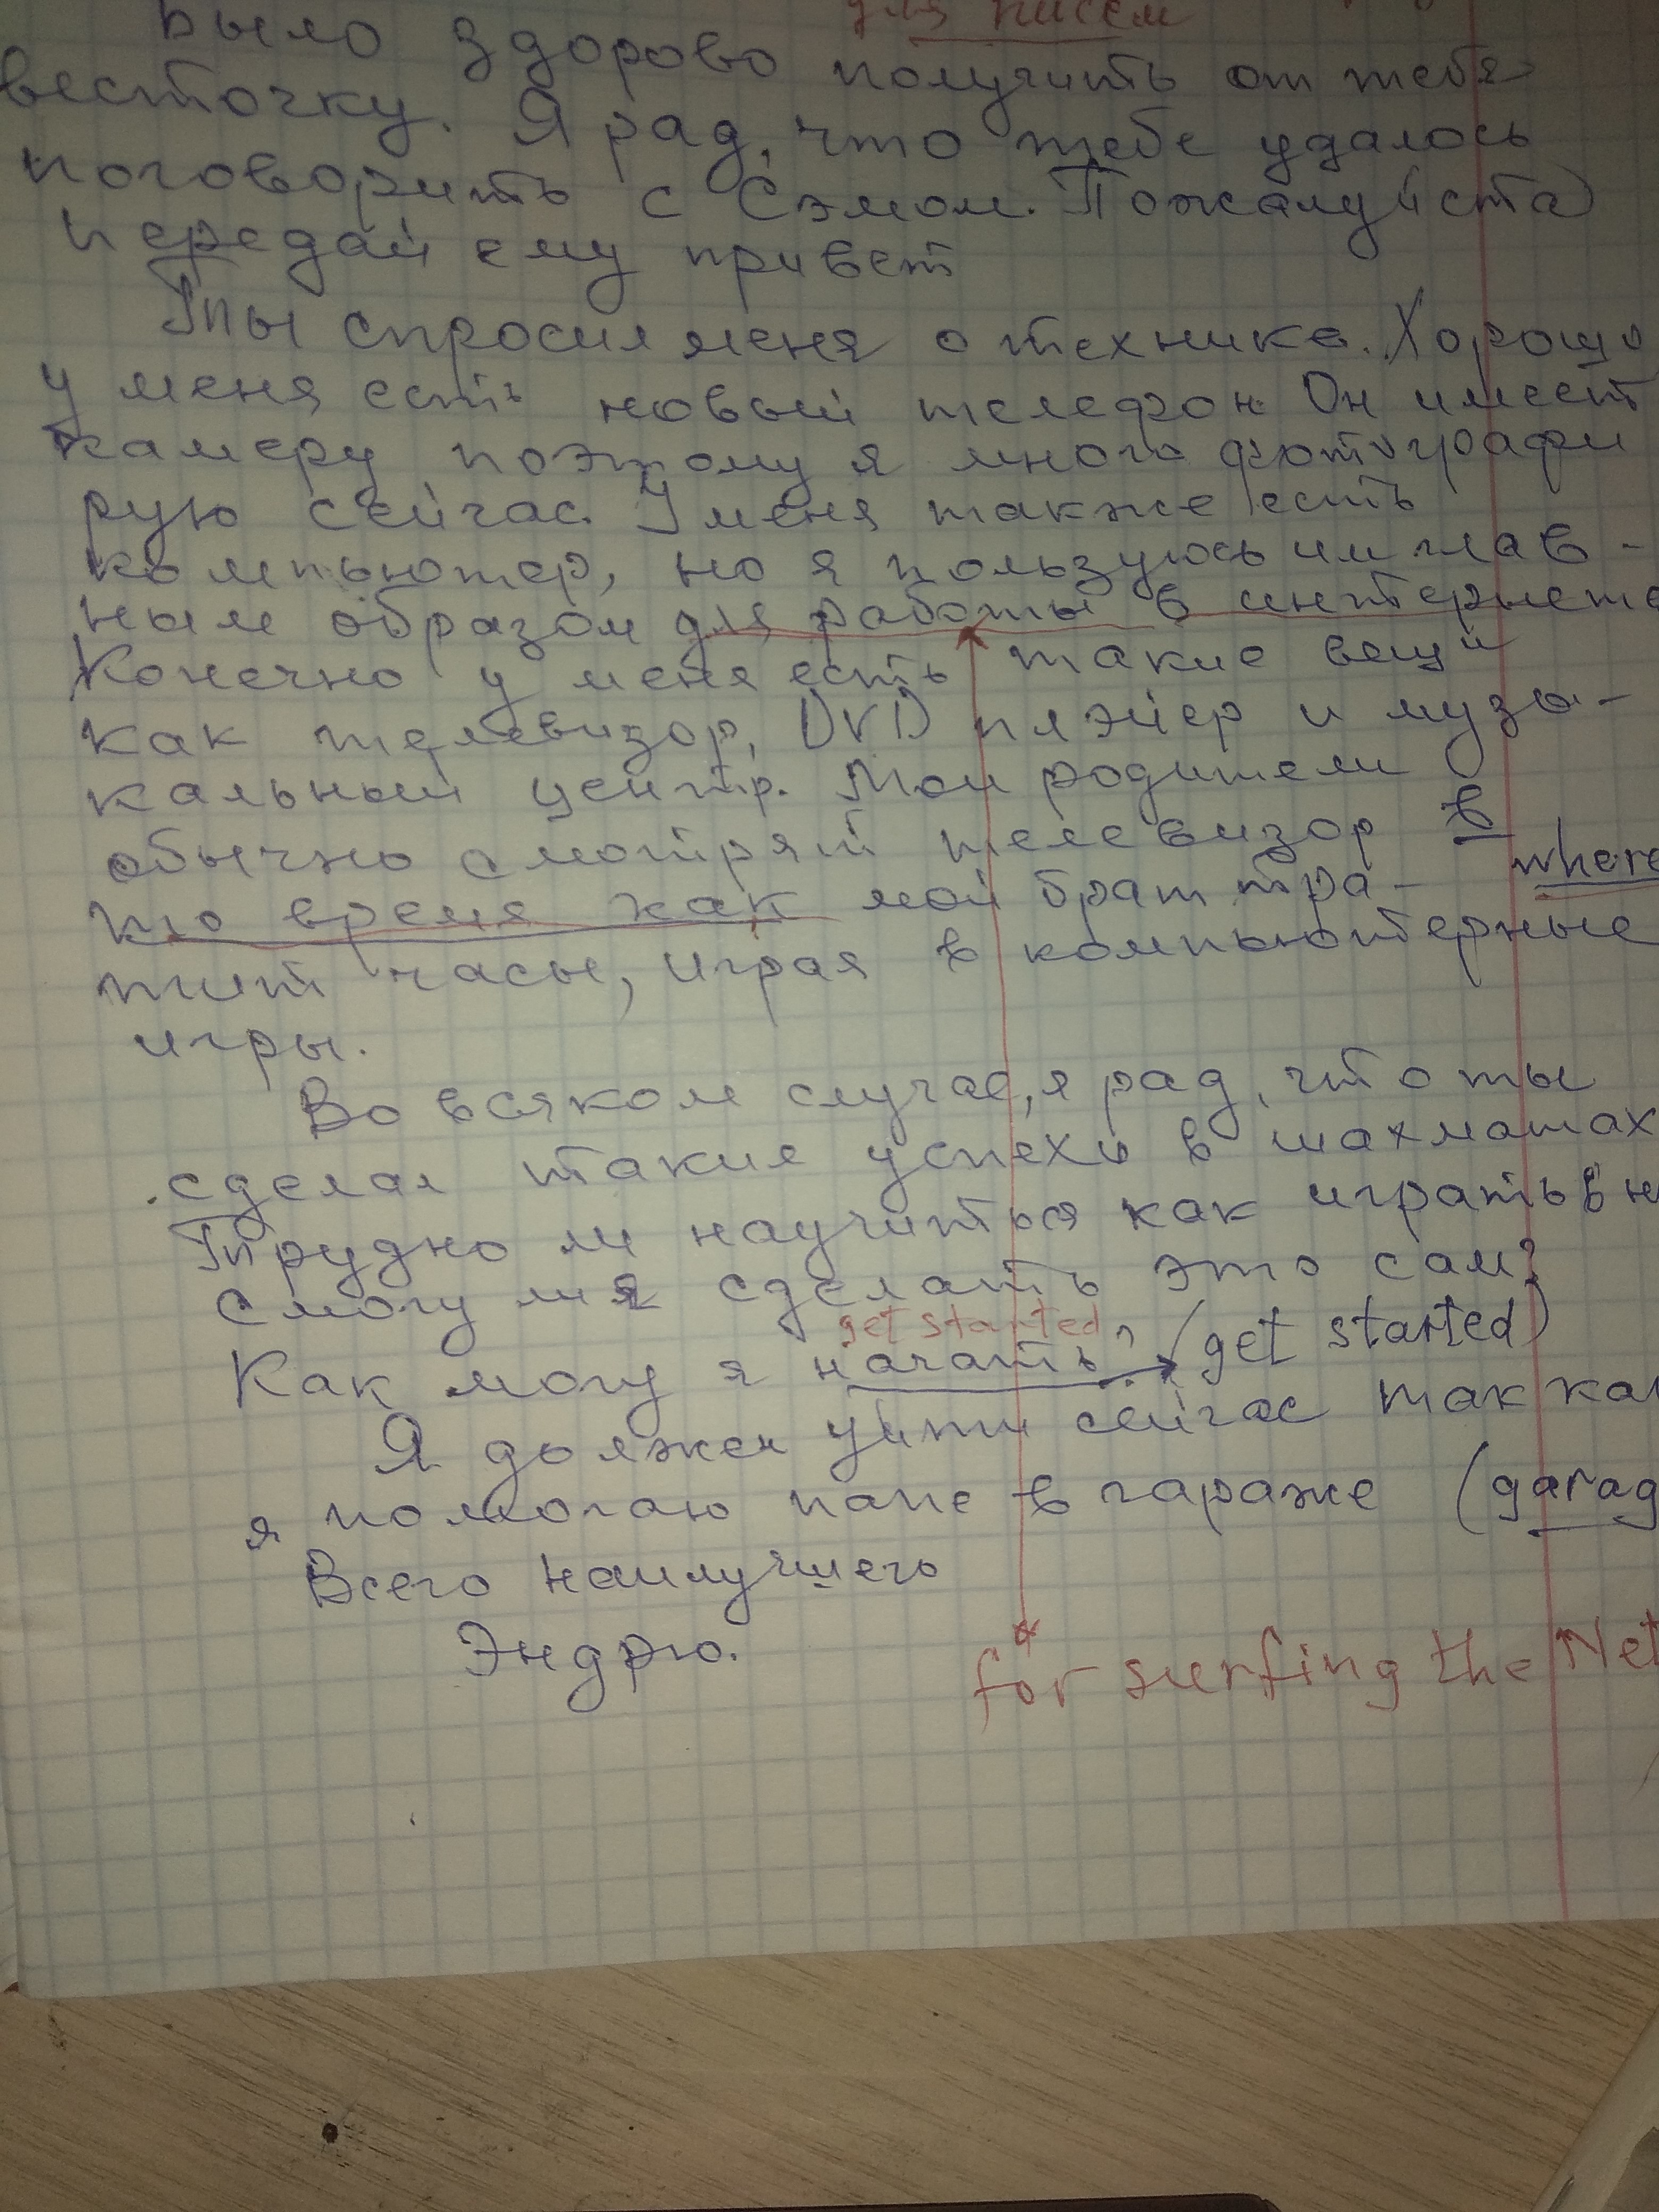 для писем
Было здорово получить от тебя
весточку. Я рад, что тебе удалось
поговорить с Сэмом. Пожалуйста
передай ему привет
Ты спросил меня о технике. Хорошо
у меня есть новый телефон. Он имеет
камеру поэтому я много фотографи
рую сейчас. У меня также есть
компьютер, но я пользуюсь им глав-
ным образом для работы в интернете
Конечно у меня есть такие вещи
как телевизор, DVD плэйер и музы-
кальный центр. Мои родители
обычно смотрят телевизор в
where
то время как мой брат тра-
тит часы, играя в компьютерные
игры.
Во всяком случае, я рад, что ты
сделал такие успехи в шахматах
Трудно ли научиться как играть в н
Смогу ли я сделать это сам?
get started
Как могу я начать? (get started)
Я должен уйти сейчас так как
я помогаю папе в гараже (garag
Всего наилучшего
Эндрю.
for surfing the Net